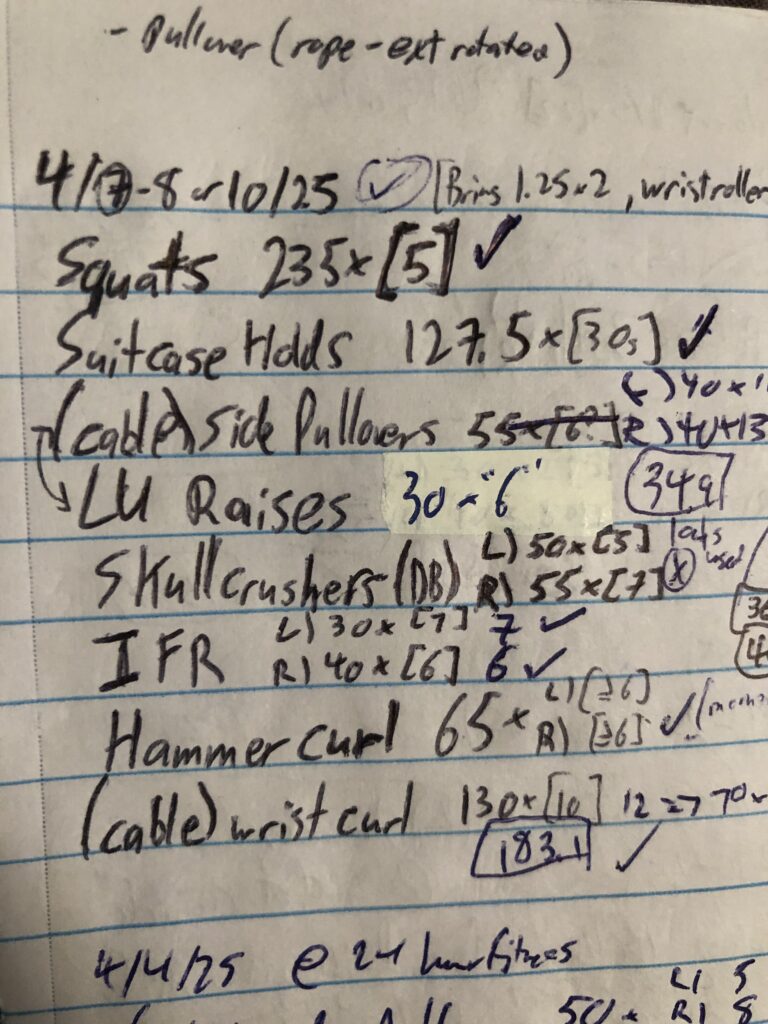 - Pullover (rope-ext rotated)
4/7-8 or 10/25 ✓ [Bring 1.25x2, wrist roller
Squats 235x[5] ✓
Suitcase Holds 127.5x[30s] ✓
L) 40x1
(cable) Side Pullovers 55x[6?] R) 40x13
LU Raises 30x"6" 34.9
Skullcrushers (DB) L) 50x[5] lats used
R) 55x[7] x
IFR L) 30x[7] 7 ✓
R) 40x[6] 6 ✓
Hammer curl 65x L) [≥6]
R) [≥6] ✓
(cable) wrist curl 130x[10] 12 => 70
183.1 ✓
4/4/25 @ 24 hour fitness
L) 5
50x R) 8